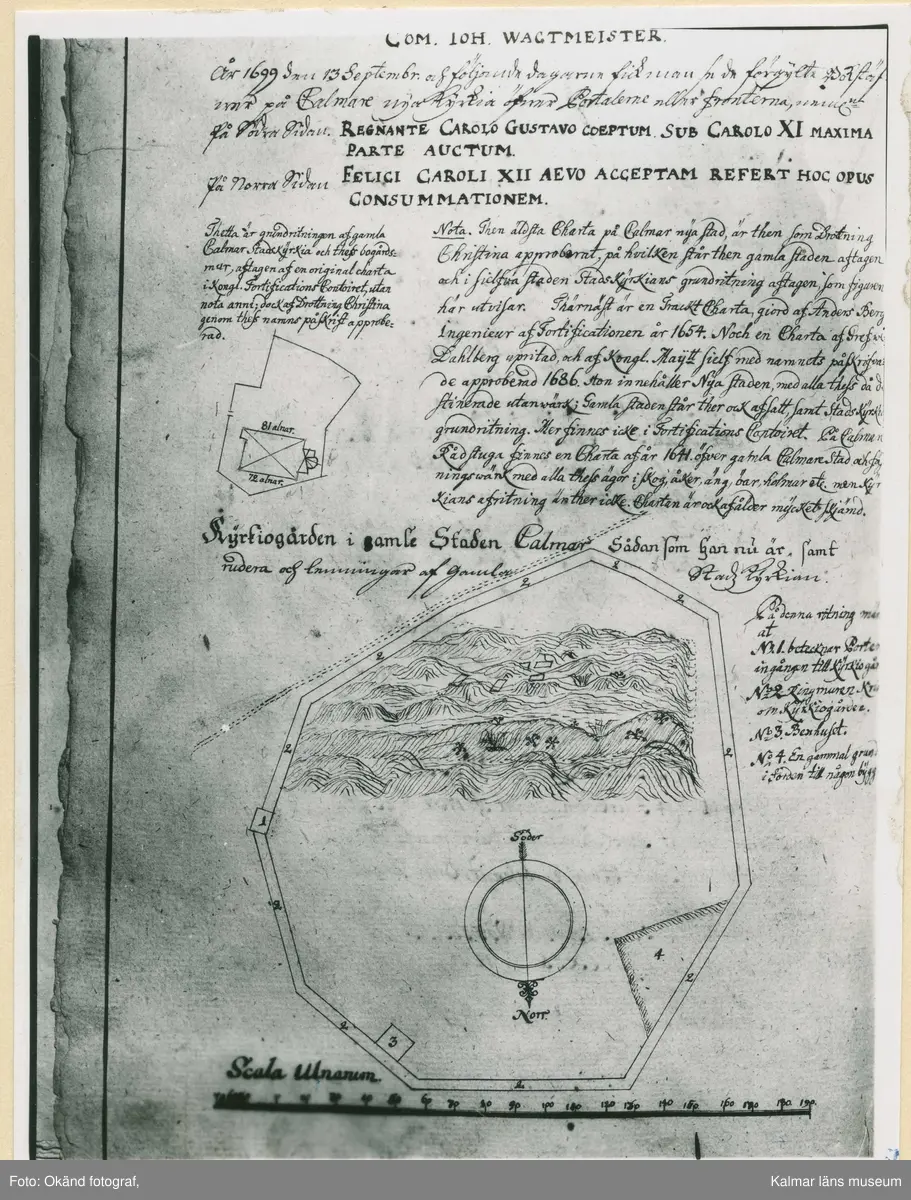 COM. IOH. WAGTMEISTER.
År 1699 den 13 Septembr. och följande dagarne fick man se de förgylte
på Calmare nya Kyrkia öfver Portalerne eller fronterna,
På Södra Sidan. REGNANTE CAROLO GUSTAVO COEPTUM. SUB CAROLO XI MAXIMA
PARTE AUCTUM.
På Norra Sidan FELICI CAROLI XII AEVO ACCEPTAM REFERT HOC OPUS
CONSUMMATIONEM.
Thetta är grundritningen af gamla
Calmar Stads Kyrkia och thess bogårds-
mur, aftagen af en original charta
i Kongl. Fortifications Contoiret, utan
nota anni; dock af Drottning Christina
genom thess namns påskrift approbe-
rad.
Nota. Then äldsta Charta på Calmar nya stad, är then som Drottning
Christina approberat, på hvilken står then gamla staden aftagen
och i sielfva staden Stads Kyrkians grundritning aftagen, som figuren
här utvisar. Thärnäst är en Tract Charta, giord af Anders Berg
Ingenieur af Fortificationen år 1654. Noch en Charta af Gref
Dahlberg upritad, och af Kongl. Maytt sielf med namnets påskrifvan-
de approberad 1686. Hon innehåller Nya staden, med alla thess då de-
stinerade utanvärk; Gamla staden står ther ock afsatt, samt Stads Kyrk
grundritning. Mer finnes icke i Fortifications Contoiret. På Calmar
Rådstuga finnes en Charta af år 1641. öfver gamla Calmare Stad och
ningswärk med alla thess ägor i skog, åker, äng, öar, holmar etc. men Kyr
kians afritning än ther icke. Charten är ock af ålder mycket skämd.
81 alnar.
72 alnar.
Kyrkiogården i gamle Staden Calmar Sådan som han nu är, samt
rudera och lemningar af Gamla Stads Kyrkian.
På denna ritning
at
No. 1. betecknar Porten
ingången till Kyrkiogår
No 2 Ringmuren Kr
om Kyrkiogården.
No 3. Benhuset.
No 4. En gammal grund
i Jorden till någon bygg
2
2
2
2
2
2
1
2
2
2
2
3
4
Söder
Norr.
Scala Ulnarum.
60 70 80 90 100 110 120 130 140 150 160 170 180 190
Foto: Okänd fotograf,
Kalmar läns museum